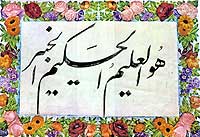 هو العلیم الحکیم الخبیر